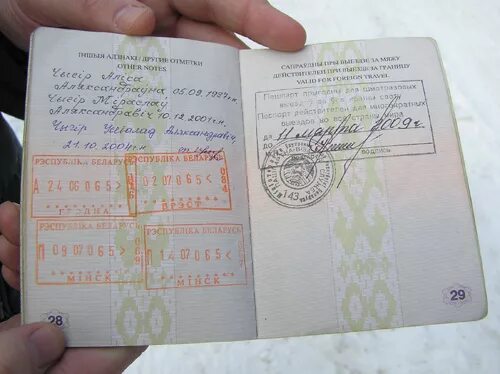 ІНШЫЯ АДЗНАКІ / ДРУГИЕ ОТМЕТКИ
OTHER NOTES
Чыгір Аліса
Аляксандраўна 05.09.1997 г.н.
Чыгір Міраслаў
Аляксандравіч 10.12.2001 г.н.
Чыгір Усяслаў Аляксандравіч,
21.10.2004 г.н.
РЭСПУБЛІКА БЕЛАРУСЬ
24 06 06 5
ГРОДНА
РЭСПУБЛІКА БЕЛАРУСЬ
02 07 06 5
БРЭСТ
РЭСПУБЛІКА БЕЛАРУСЬ
09 07 06 5
МІНСК
РЭСПУБЛІКА БЕЛАРУСЬ
14 07 06 5
МІНСК
28
САПРАЎДНЫ ПРЫ ВЫЕЗДЗЕ ЗА МЯЖУ
ДЕЙСТВИТЕЛЕН ПРИ ВЫЕЗДЕ ЗА ГРАНИЦУ
VALID FOR FOREIGN TRAVEL
Пашпарт прыгодны для шматразовых
выездаў ва ўсе краіны свету
Паспорт действителен для многократных
выездов во все страны мира
да
до
11 марта 2009 г.
подпись
143
29